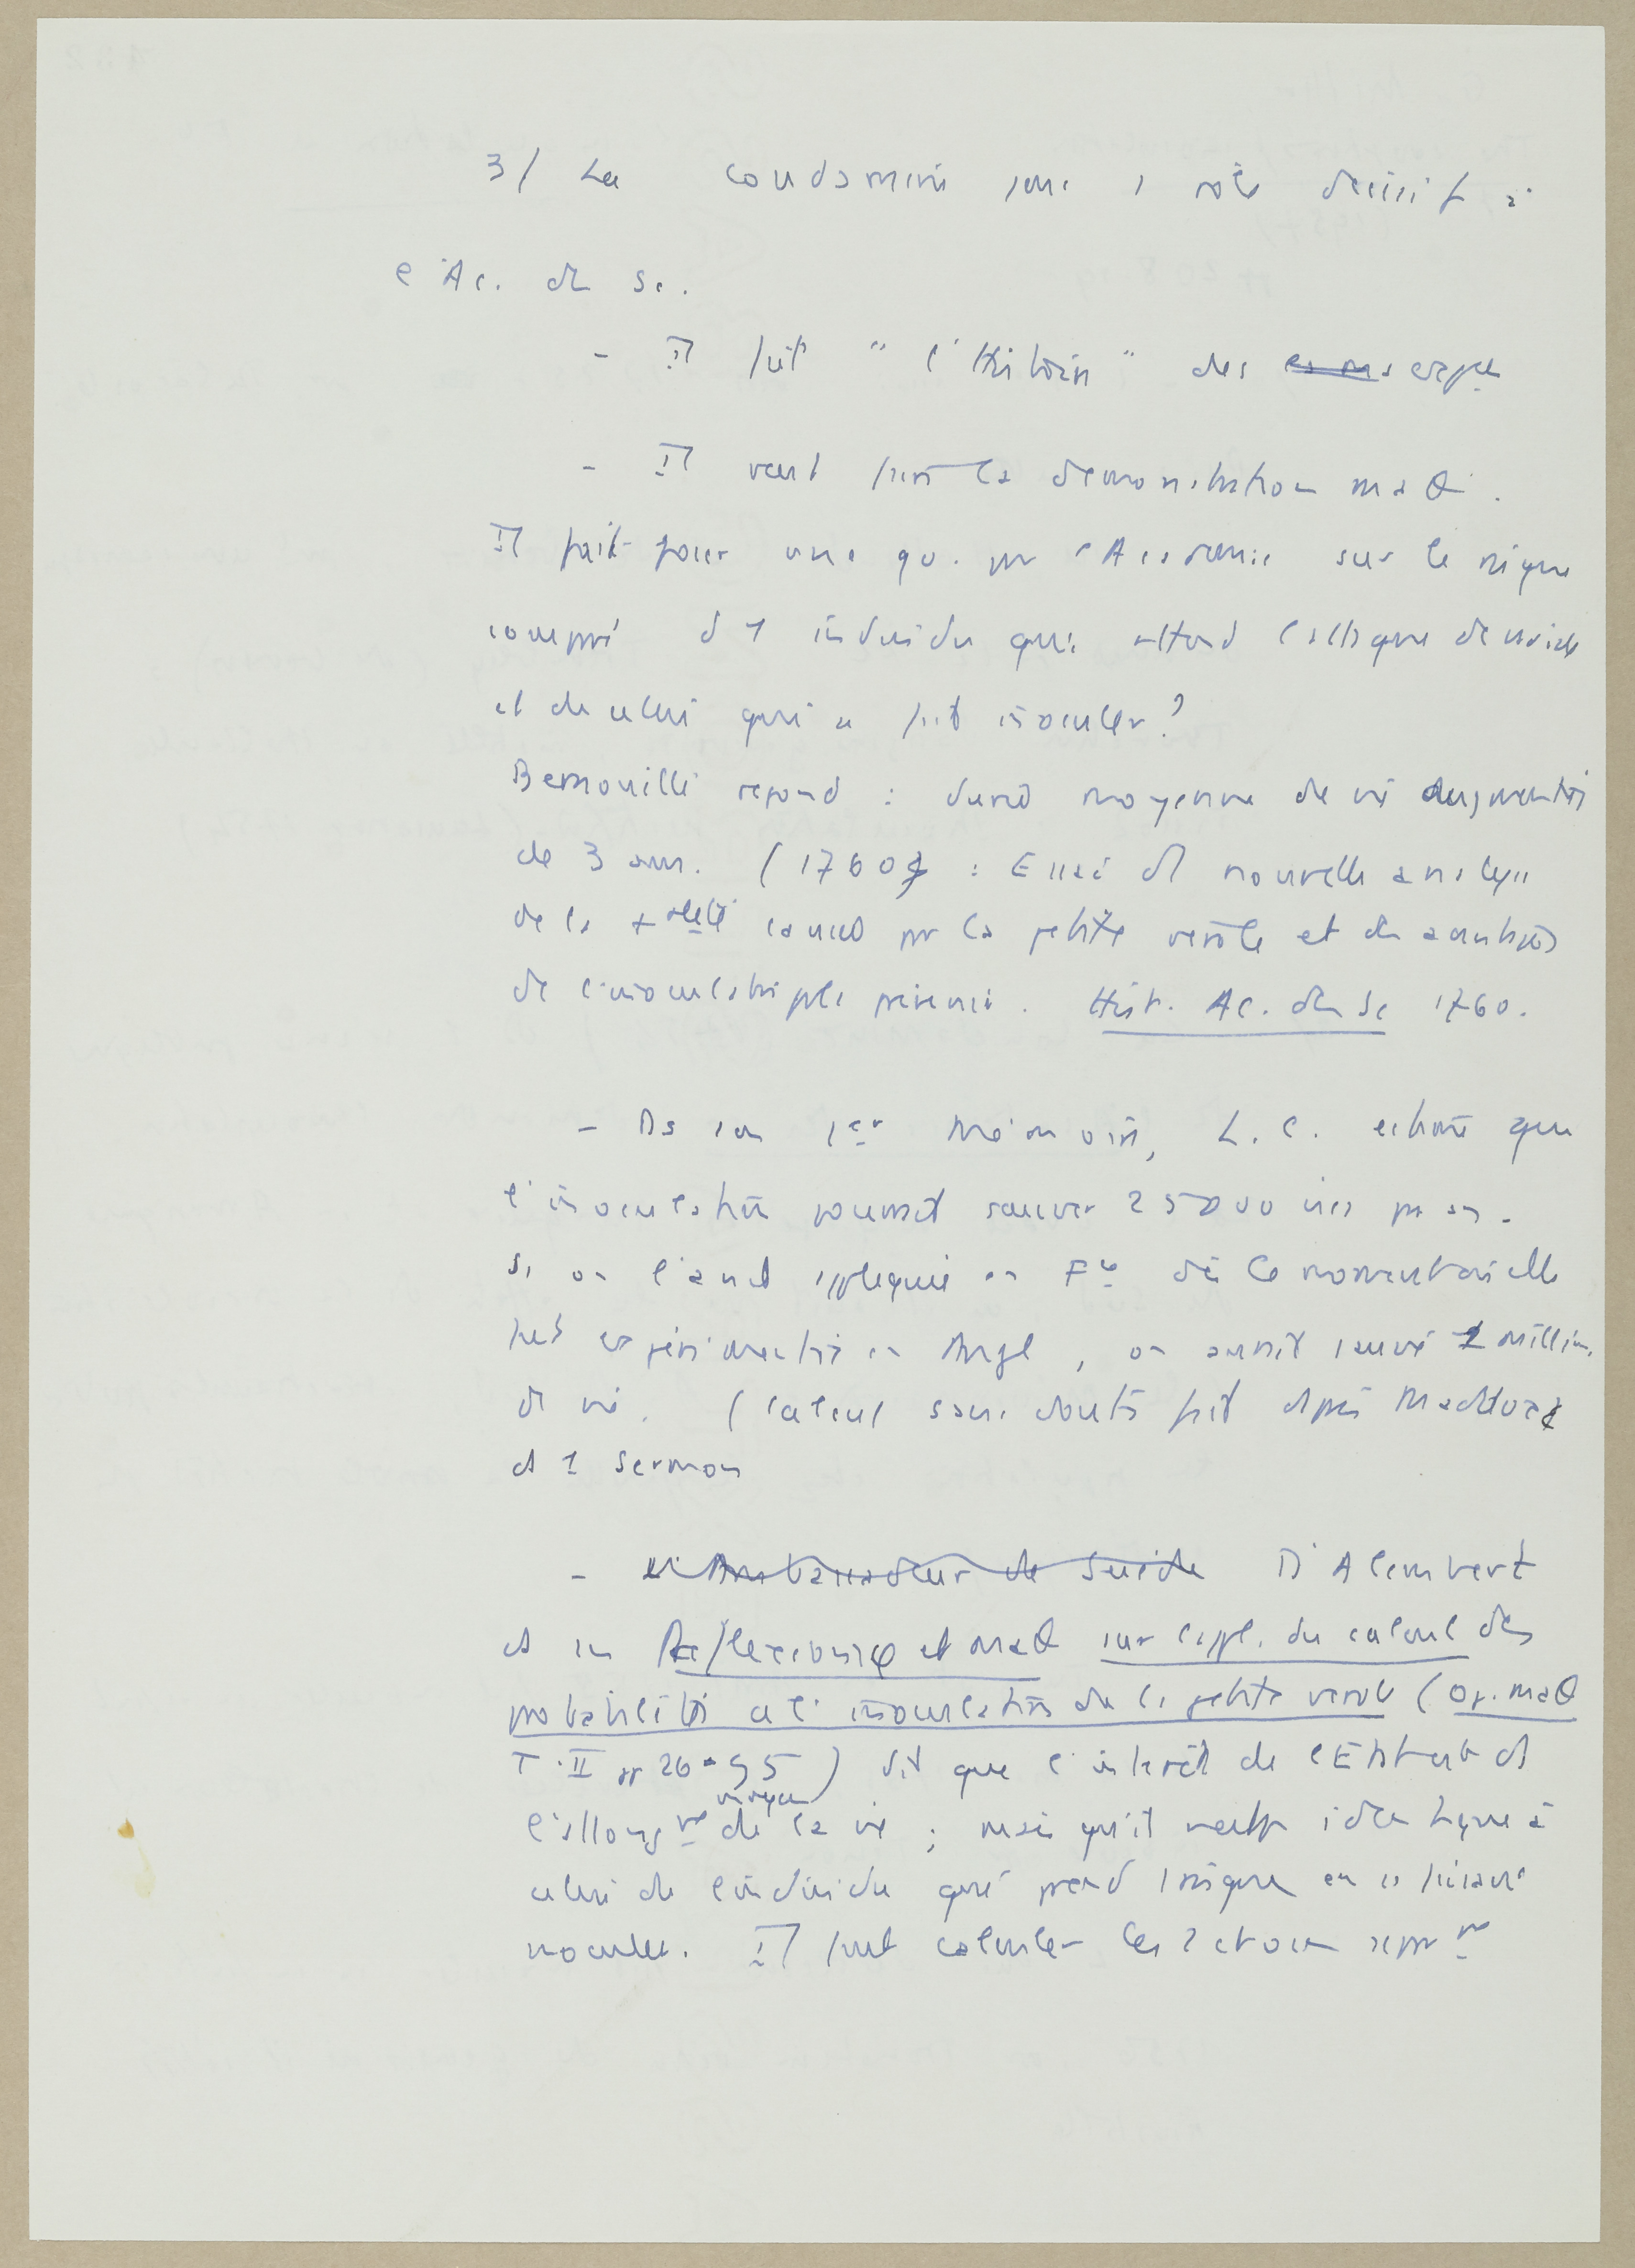 3/ La Condamine joue 1 rôle décisif à
l'Ac. des Sc.
- Il fait "l'Histoire" des
- Il veut faire la démonstration math.
Il fait poser une qu. par l'Académie sur le risque
comparé d'1 individu qui attend l'attaque de variole
et de celui qui se fait inoculer ?
Bernouilli répond : durée moyenne de vie augmentée
de 3 ans. (1760 : Essai d'1 nouvelle analyse
de la +talité causée par la petite vérole et des avantages
de l'inoculation pr la prévenir. Hist. Ac. des Sc 1760.
- Ds son 1er Mémoire, L.C. estime que
l'inoculation pourrait sauver 25000 vies par an.
Si on l'avait appliquée en Fce dès le moment où elle
était expérimentée en Angl, on aurait sauvé 1 million
de vies. (Calcul sans doute fait d'après Maddox
ds 1 sermon
- L'Ambassadeur de Suède D'Alembert
ds ses Réflexions φ et math sur l'appl. du calcul des
probabilités à l'inoculation de la petite vérole (Op. math
T. II pp 26-95) dit que l'intérêt de l'Etat est ds
l'allongt moyen de la vie ; mais qu'il n'est pas identique à
celui de l'individu qui prend 1 risque en se faisant
inoculer. Il faut calculer les 2 choses sépart